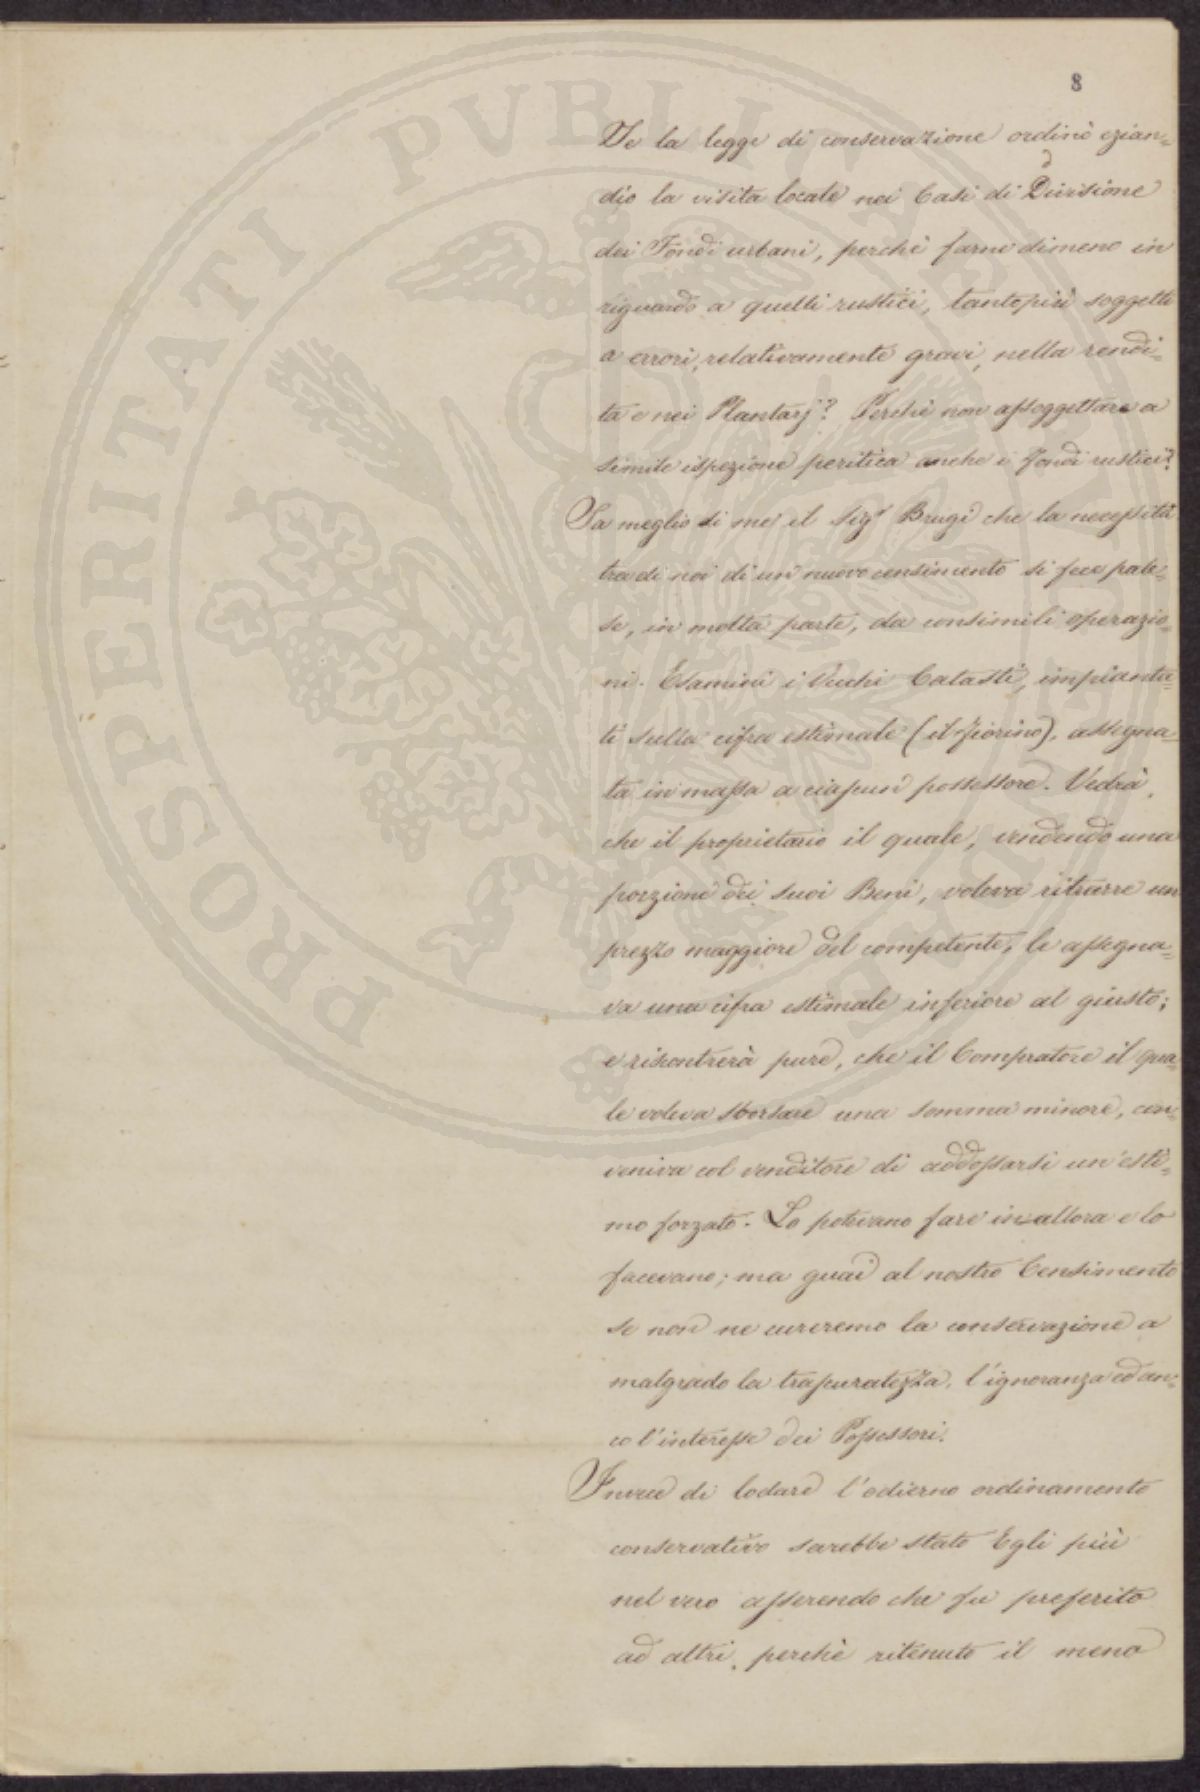 8
Se la legge di conservazione ordinò ezian=
dio la visita locale nei Casi di Divisione
dei Fondi urbani, perchè farne dimeno in
riguardo a quelli rustici, tantopiù soggetti
a errori, relativamente gravi, nella rendi=
ta e nei Plantarj? Perchè non assoggettare a
simile ispezione peritica anche i Fondi rustici?
Sa meglio di me il Sigr Brugi che la necessità
tra di noi di un nuovo censimento si fece pale=
se, in molta parte, da consimili operazio=
ni. Esamini i Vecchi Catasti, impianta=
ti sulla cifra estimale (il fiorino), assegna=
ta in massa a ciascun possessore. Vedrà,
che il proprietario il quale, vendendo una
porzione dei suoi Beni, voleva ritrarre un
prezzo maggiore del competente, le assegna=
va una cifra estimale inferiore al giusto;
e riscontrerà pure, che il Compratore il qua=
le voleva sborsare una somma minore, con=
veniva col venditore di addossarsi un'esti=
mo forzato. Lo potevano fare in allora e lo
facevano; ma guai al nostro Censimento
se non ne cureremo la conservazione a
malgrado la trascuratezza, l'ignoranza ed an=
co l'interesse dei Possessori.
Invece di lodare l'odierno ordinamento
conservativo sarebbe stato Egli più
nel vero asserendo che fu preferito
ad altri, perchè ritenuto il meno
PROSPERITATI PVBLICAE AVGENDAE